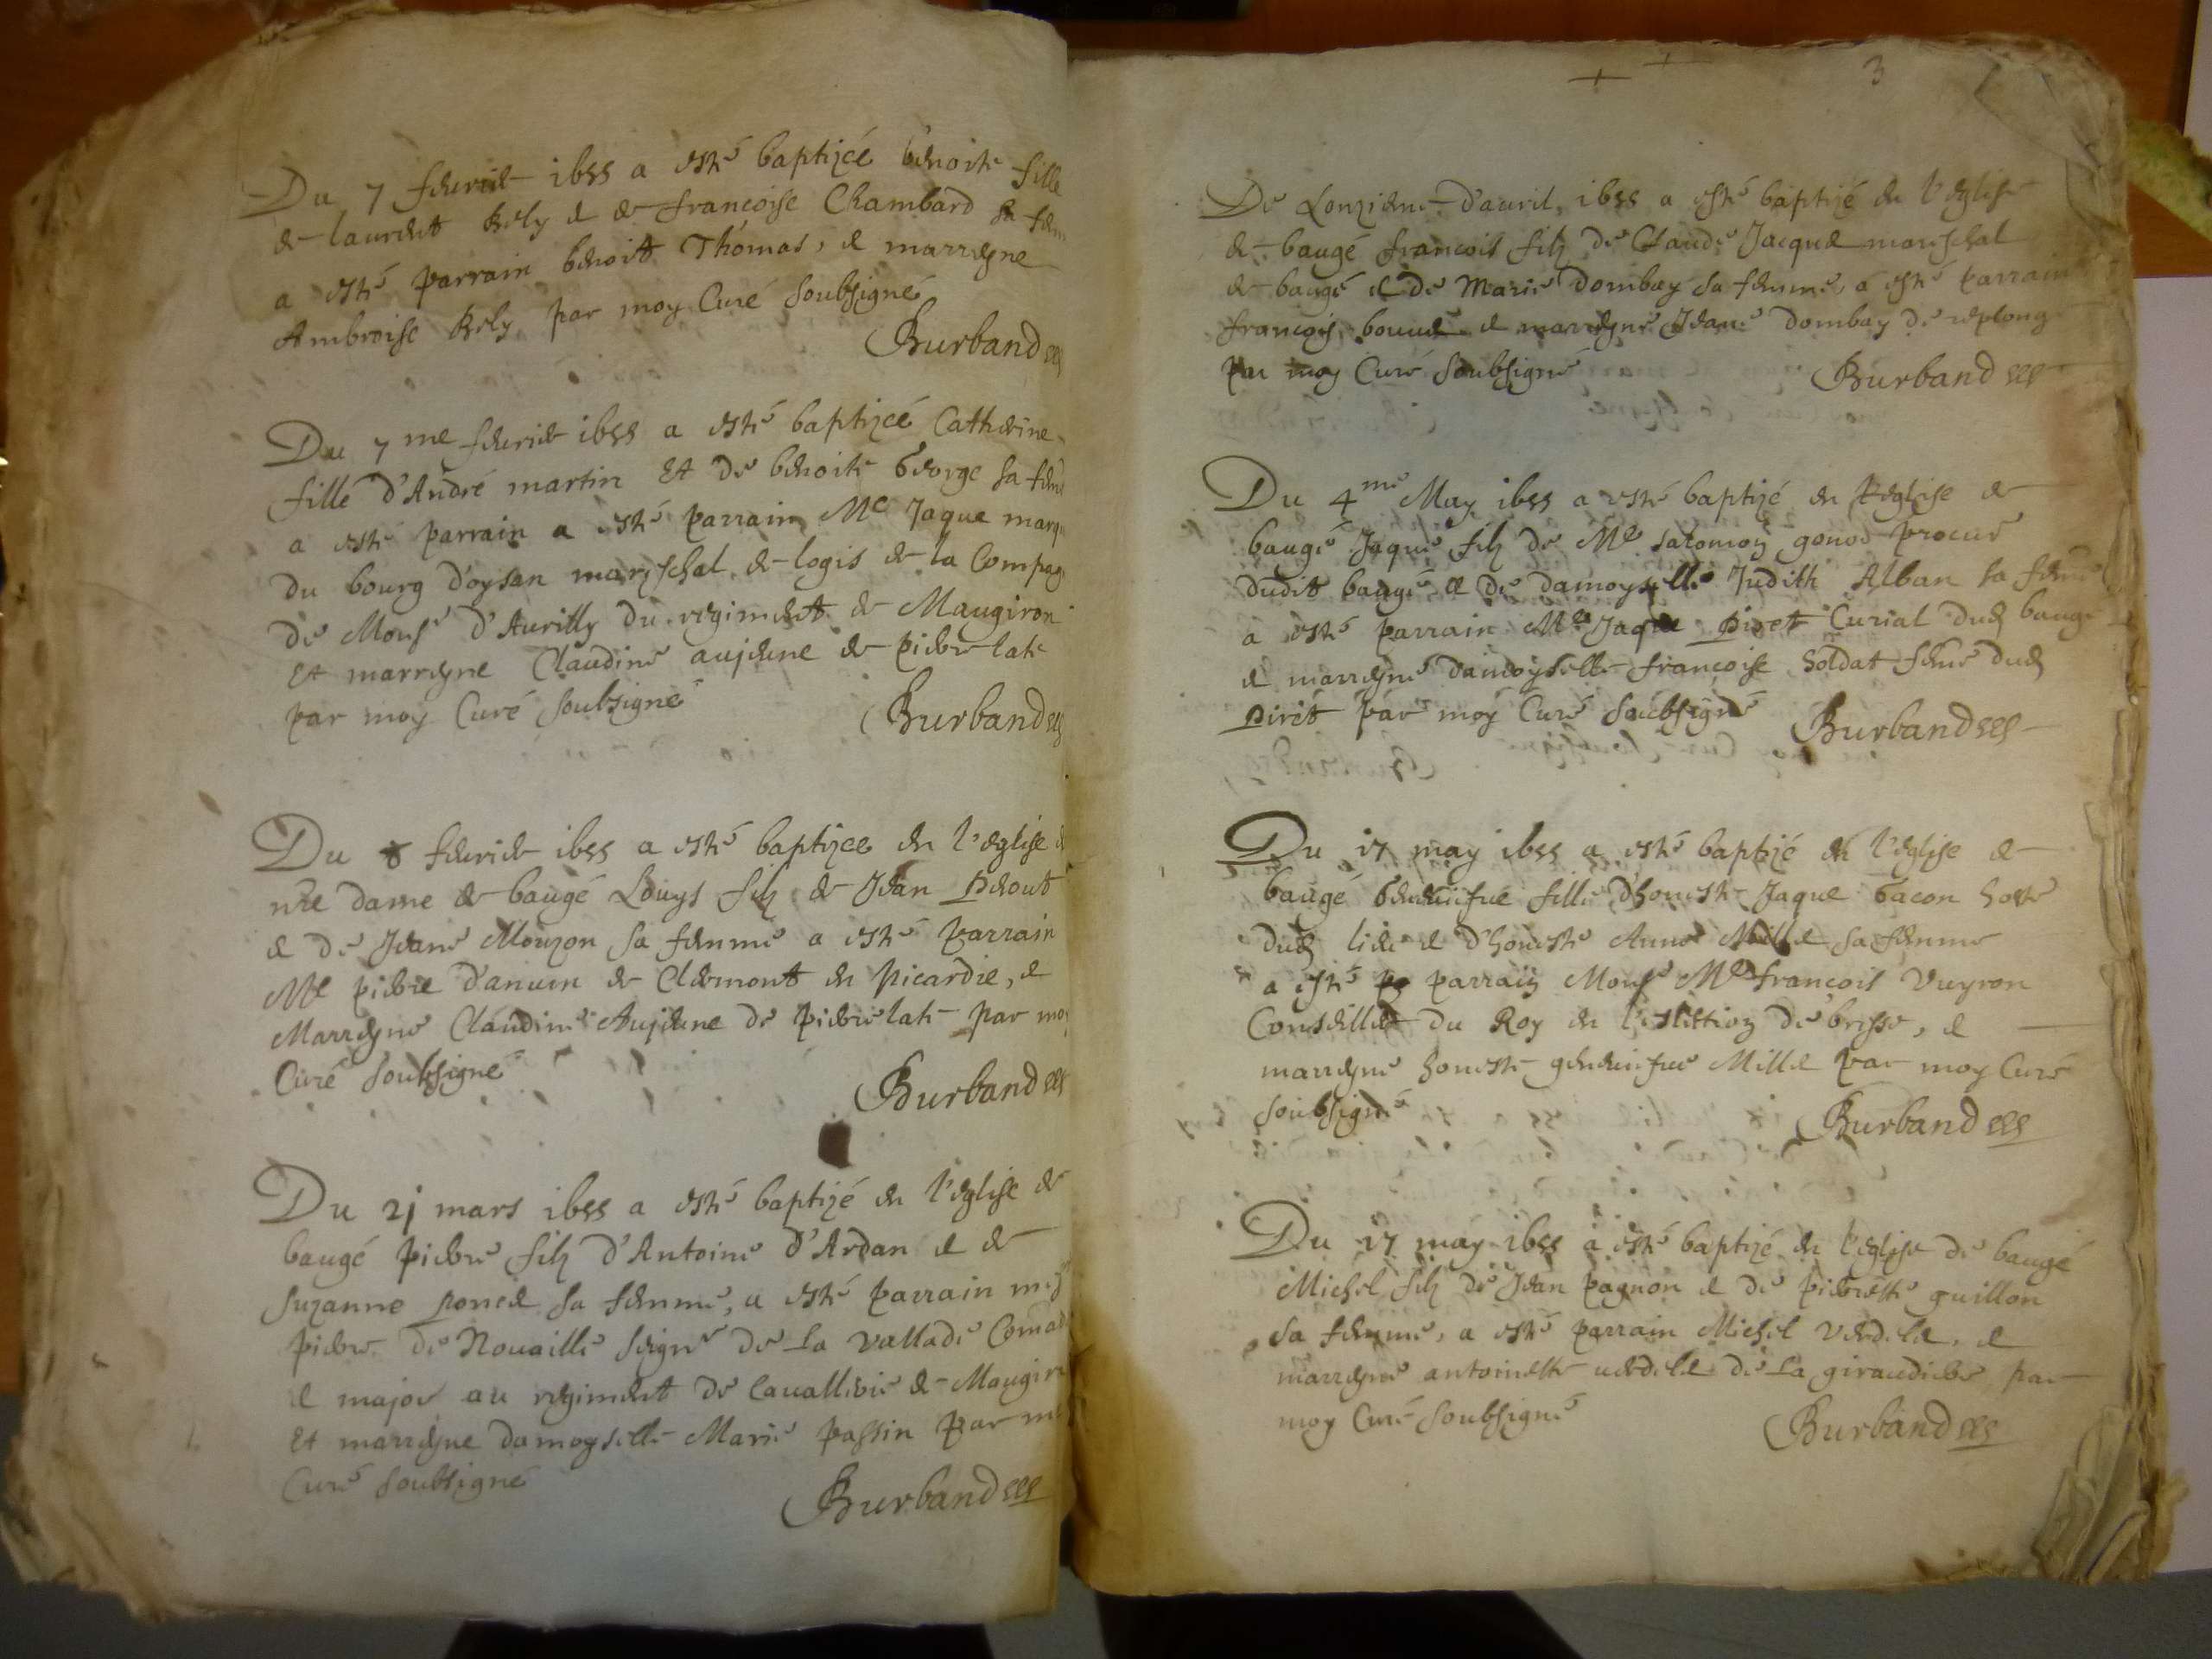 Du 7 feurier 1655 a esté baptizée benoite fille
de laurent Rely et de francoise Chambard sa fem
a esté parrain benoist Thomas, et marreyne
Ambroise Rely par moy Curé soubsigné
Burband
Du 7 me feurier 1655 a esté baptizée Catherine
fille d'André martin Et de benoite George sa fem
a esté parrain a esté parrain Me Jaque marq
du bourg d'oysan mareschal de logis de la Compag
de Monsr d'Aurilly du regiment de Maugiron
Et marreyne Claudine aujeune de pierre late
par moy Curé soubsigné
Burband
Du 8 feurier 1655 a esté baptizee en l'eglise d
nre dame de baugé Louys filz de Jean
et de Jeane Mouzon sa femme a esté parrain
Me pierre d'anuin de Clermont en picardie, et
Marreyne Claudine Aujeune de pierre late par moy
Curé soubsigné
Burband
Du 21 mars 1655 a esté baptizé en l'eglise de
baugé pierre filz d'Antoine d'Ardan et de
suzanne poncet sa femme, a esté parrain
pierre de Nouaille seignr de La vallade
et major au regiment de Cauallerie de Maugiro
Et marreyne damoyselle Marie passin par m
Curé soubsigné
Burband
3
De Lonzieme d'auril, 1655 a esté baptizé en l'eglise
de baugé francois filz de Claude Jacquet mareschal
de baugé et de Marie dombey sa femme, a esté parrain
francois et marreyne Jeane dombey de replong
par moy Curé soubsigné
Burband
Du 4me May 1655 a esté baptizé en l'eglise de
baugé Jaque filz de Me salomon gonod procur
dudit baugé et de damoyselle Judith Alban sa feme
a esté parrain Me Jaque piret Curial dud baugé
et marreyne damoyselle francoise soldat feme dud
piret par moy Curé soubsigné
Burband
Du 17 may 1655 a esté baptizé en l'eglise de
baugé Geneuiefue fille d'honeste Jaque bacon hoste
dud lieu et d'honeste Anne Millet sa femme
a esté parrain Monsr Me francois Vuyron
Conseiller du Roy en l'eslection de bresse, et
marreyne honeste geneuiefue Millet par moy Curé
soubsigné
Burband
Du 17 may 1655 a esté baptizé en l'eglise de baugé
Michel filz de Jean pagnon et de pierrette guillon
sa femme, a esté parrain Michel Verdelet, et
marreyne antoinette uerdelet de La giraudiere par
moy Curé soubsigné
Burband